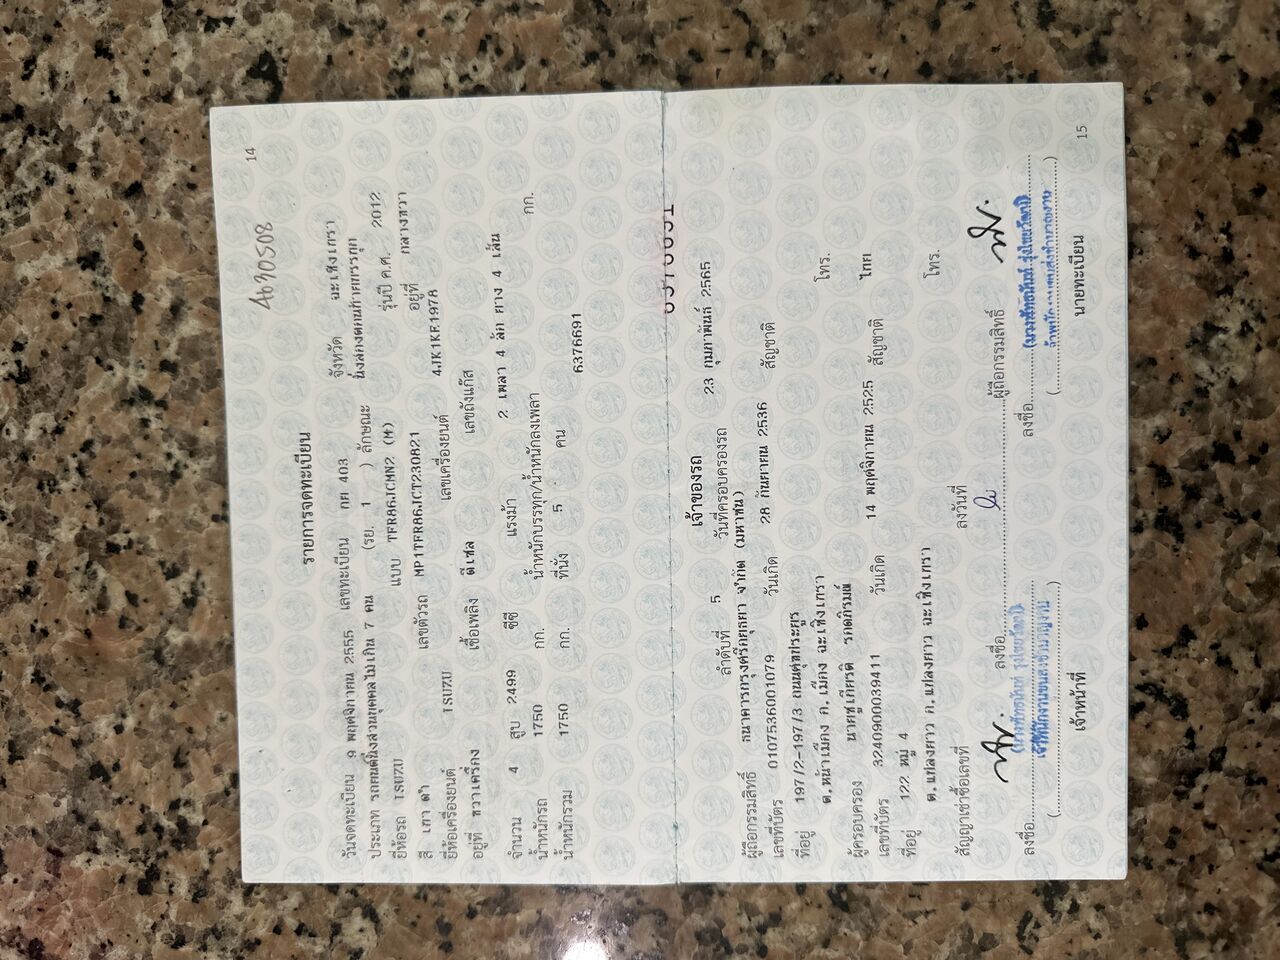 14
A630508
รายการจดทะเบียน
วันจดทะเบียน 9 พฤศจิกายน 2555 เลขทะเบียน กต 403 จังหวัด ฉะเชิงเทรา
ประเภท รถยนต์นั่งส่วนบุคคลไม่เกิน 7 คน (รย. 1 ) ลักษณะ นั่งสองตอนท้ายบรรทุก
ยี่ห้อรถ ISUZU แบบ TFR86JCMN2 (M) รุ่นปี ค.ศ. 2012
สี เทา ดำ เลขตัวรถ MP1TFR86JCT230821 อยู่ที่ กลางขวา
ยี่ห้อเครื่องยนต์ ISUZU เลขเครื่องยนต์ 4JK1KE1978
อยู่ที่ ขวาเครื่อง เชื้อเพลิง ดีเซล เลขถังแก๊ส
จำนวน 4 สูบ 2499 ซีซี แรงม้า 2 เพลา 4 ล้อ ยาง 4 เส้น
น้ำหนักรถ 1750 กก. น้ำหนักบรรทุก/น้ำหนักลงเพลา กก.
น้ำหนักรวม 1750 กก. ที่นั่ง 5 คน 6376691
เจ้าของรถ
ลำดับที่ 5 วันที่ครอบครองรถ 23 กุมภาพันธ์ 2565
ผู้ถือกรรมสิทธิ์ ธนาคารกรุงศรีอยุธยา จำกัด (มหาชน)
เลขที่บัตร 0107536001079 วันเกิด 28 กันยายน 2536 สัญชาติ
ที่อยู่ 197/2-197/3 ถนนศุขประยูร
ต.หน้าเมือง อ.เมือง ฉะเชิงเทรา โทร.
ผู้ครอบครอง นายชูเกียรติ รอดภิรมย์
เลขที่บัตร 3240900039411 วันเกิด 14 พฤศจิกายน 2525 สัญชาติ ไทย
ที่อยู่ 122 หมู่ 4
ต.แปลงยาว อ.แปลงยาว ฉะเชิงเทรา โทร.
สัญญาเช่าซื้อเลขที่ ลงวันที่
ลงชื่อ ผู้ถือกรรมสิทธิ์
ลงชื่อ ลงชื่อ
เจ้าหน้าที่ นายทะเบียน
15